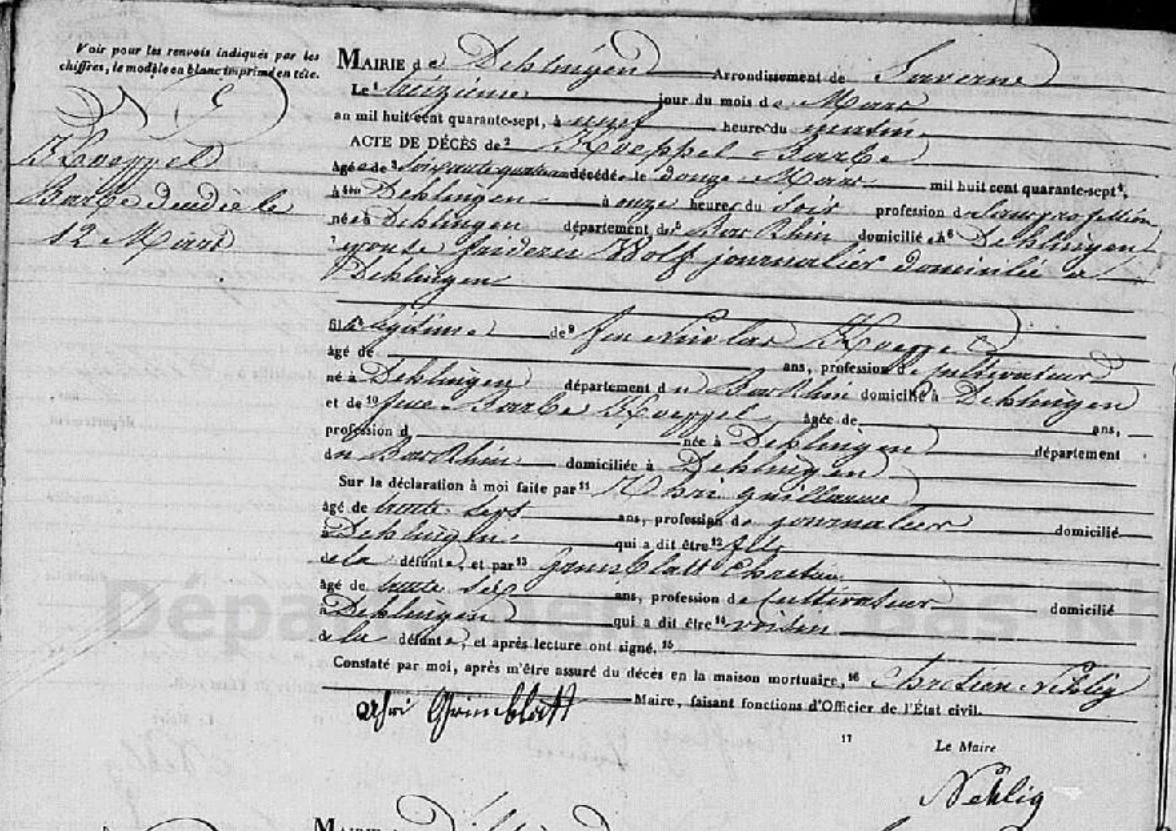 Voir pour les renvois indiqués par les
chiffres, le modèle en blanc imprimé en tête.
Koeppel
Barbe décédée le
12 Mars
MAIRIE de Dehlingen Arrondissement de Saverne
Le 1 treizième jour du mois de Mars
an mil huit cent quarante-sept, à neuf heures du matin
ACTE DE DÉCÈS de 2 Koeppel Barbe
âgée de 3 soixante quatre ans décédée le douze Mars mil huit cent quarante-sept 4,
à Dehlingen à onze heures du soir profession d sans profession
née à Dehlingen département du 5 Bas Rhin domiciliée à 6 Dehlingen
7 Wolf journalier domicilié à
Dehlingen
fille légitime de 9 feu Nicolas Koeppel
âgé de ans, profession de cultivateur
né à Dehlingen département du Bas Rhin domicilié à Dehlingen
et de 10 feue Barbe Koeppel âgée de ans,
profession d née à Dehlingen département
du Bas Rhin domiciliée à Dehlingen
Sur la déclaration à moi faite par 11 guillaume
âgé de trente sept ans, profession de journalier domicilié
à Dehlingen qui a dit être 12
de la défunte, et par 13 Chretien
âgé de trente six ans, profession de Cultivateur domicilié
à Dehlingen qui a dit être 14 voisin
de la défunte, et après lecture ont signé. 15
Constaté par moi, après m'être assuré du décès en la maison mortuaire, 16 Chretien Nehlig
Maire, faisant fonctions d'Officier de l'État civil.
17 Le Maire
Nehlig
MAIRIE